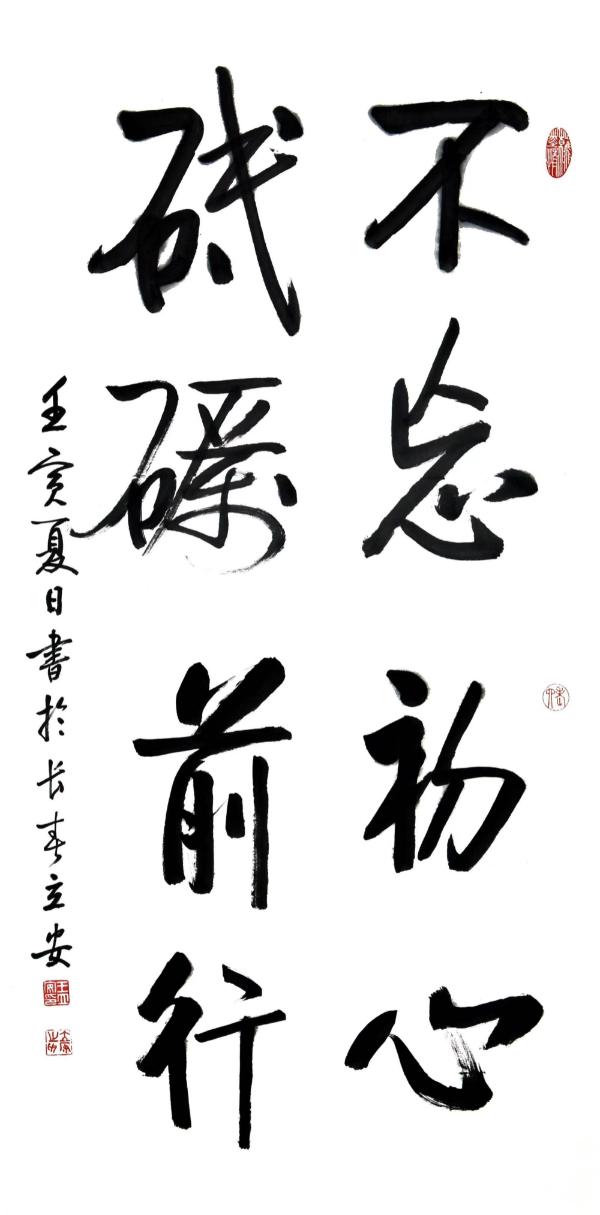 不忘初心
砥砺前行
壬寅夏日书於长春立安